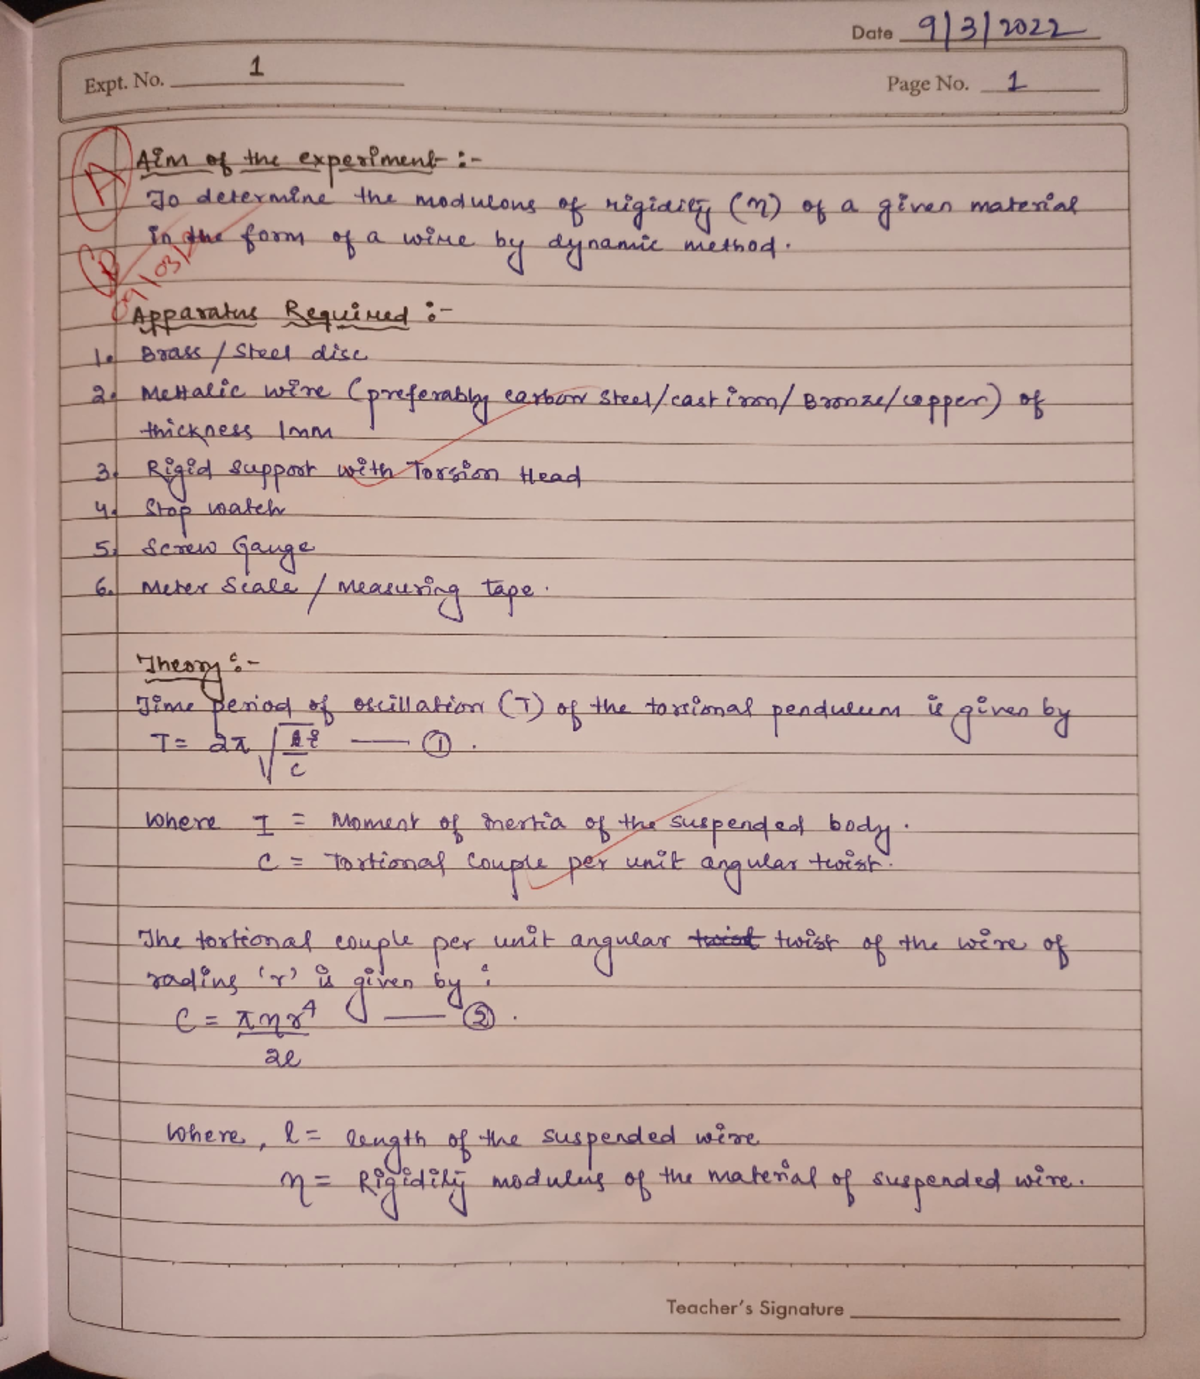 Date 9/3/2022
Expt. No. 1
Page No. 1
A
Aim of the experiment :-
To determine the modulous of rigidity (η) of a given material
in the form of a wire by dynamic method.
09/03/
Apparatus Required :-
1. Brass / Steel disc
2. Mettalic wire (preferably carbon steel/cast iron/Bronze/copper) of
thickness 1mm
3. Rigid support with Torsion Head
4. Stop watch
5. Screw Gauge
6. Meter Scale / Measuring tape.
Theory :-
Time period of oscillation (T) of the torsional pendulum is given by
T = 2π √(I/C) —— ①.
where I = Moment of inertia of the suspended body.
C = Tortional couple per unit angular twist.
The tortional couple per unit angular twist twist of the wire of
radius 'r' is given by :
C = πηr⁴ —— ②.
2l
Where, l = length of the suspended wire
η = Rigidity modulus of the material of suspended wire.
Teacher's Signature